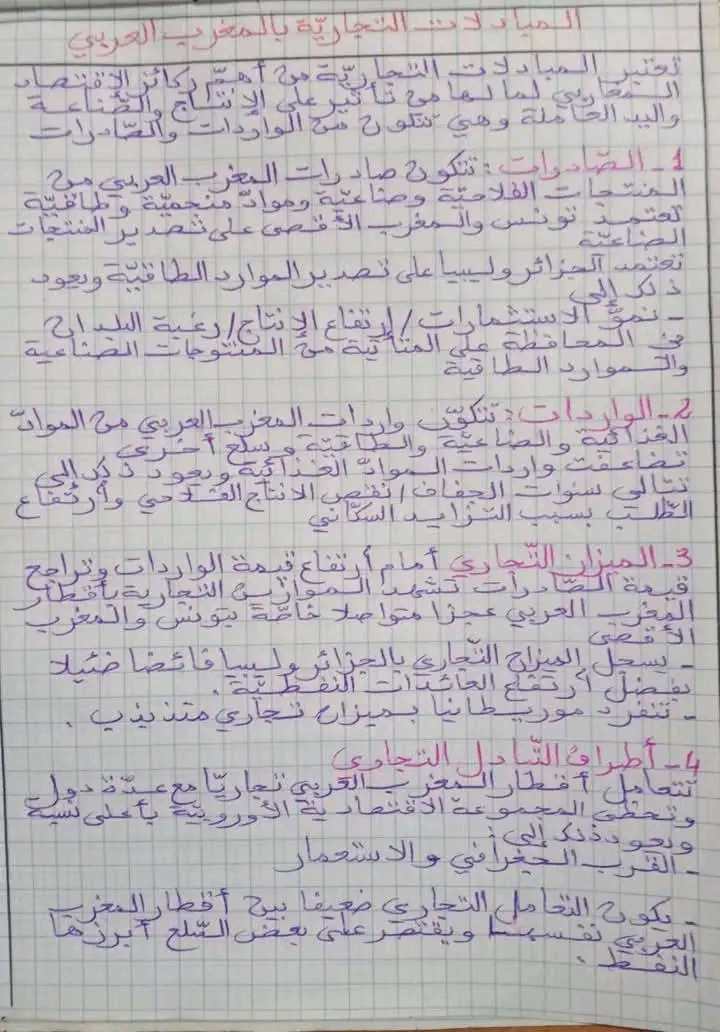 المبادلات التجاريّة بالمغرب العربي
تعتبر المبادلات التجاريّة من أهمّ ركائز الاقتصاد
المغاربي لما لها من تأثير على الإنتاج والصّناعة
واليد العاملة وهي تتكون من الواردات والصّادرات
1- الصّادرات: تتكون صادرات المغرب العربي من
المنتجات الفلاحيّة وصناعيّة وموادّ منجميّة وطاقيّة
تعتمد تونس والمغرب الأقصى على تصدير المنتجات
الصناعيّة
تعتمد الجزائر وليبيا على تصدير الموارد الطاقيّة ويعود
ذلك إلى
- نموّ الاستثمارات / إرتفاع الإنتاج / رغبة البلدان
في المحافظة على المتأتية من المنتوجات الصناعية
والموارد الطاقية
2- الواردات: تتكوّن واردات المغرب العربي من الموادّ
الغذائية والصناعيّة والطاقيّة وسلع أخرى
تضاعفت واردات الموادّ الغذائية ويعود ذلك إلى
تتالي سنوات الجفاف / نقص الانتاج الفلاحي وأرتفاع
الطّلب بسبب التزايد السكّاني
3- الميزان التّجاري أمام أرتفاع قيمة الواردات وتراجع
قيمة الصّادرات تشهد الموازين التجارية بأقطار
المغرب العربي عجزا متواصلا خاصّة بتونس والمغرب
الأقصى
- يسجل الميزان التّجاري بالجزائر وليبيا فائضا ضئيلا
بفضل أرتفاع العائدات النفطيّة.
- تنفرد موريطانيا بميزان تجاري متذبذب.
4- أطراف التّبادل التجاري
تتعامل أقطار المغرب العربي تجاريّا مع عدّة دول
وتحظى المجموعة الاقتصادية الأوروبيّة بأعلى نسبة
ويعود ذلك إلى:
- القرب الجغرافي والاستعمار
- يكون التعامل التجاري ضعيفا بين أقطار المغرب
العربي نفسها ويقتصر على بعض السّلع أبرزها
النفط.